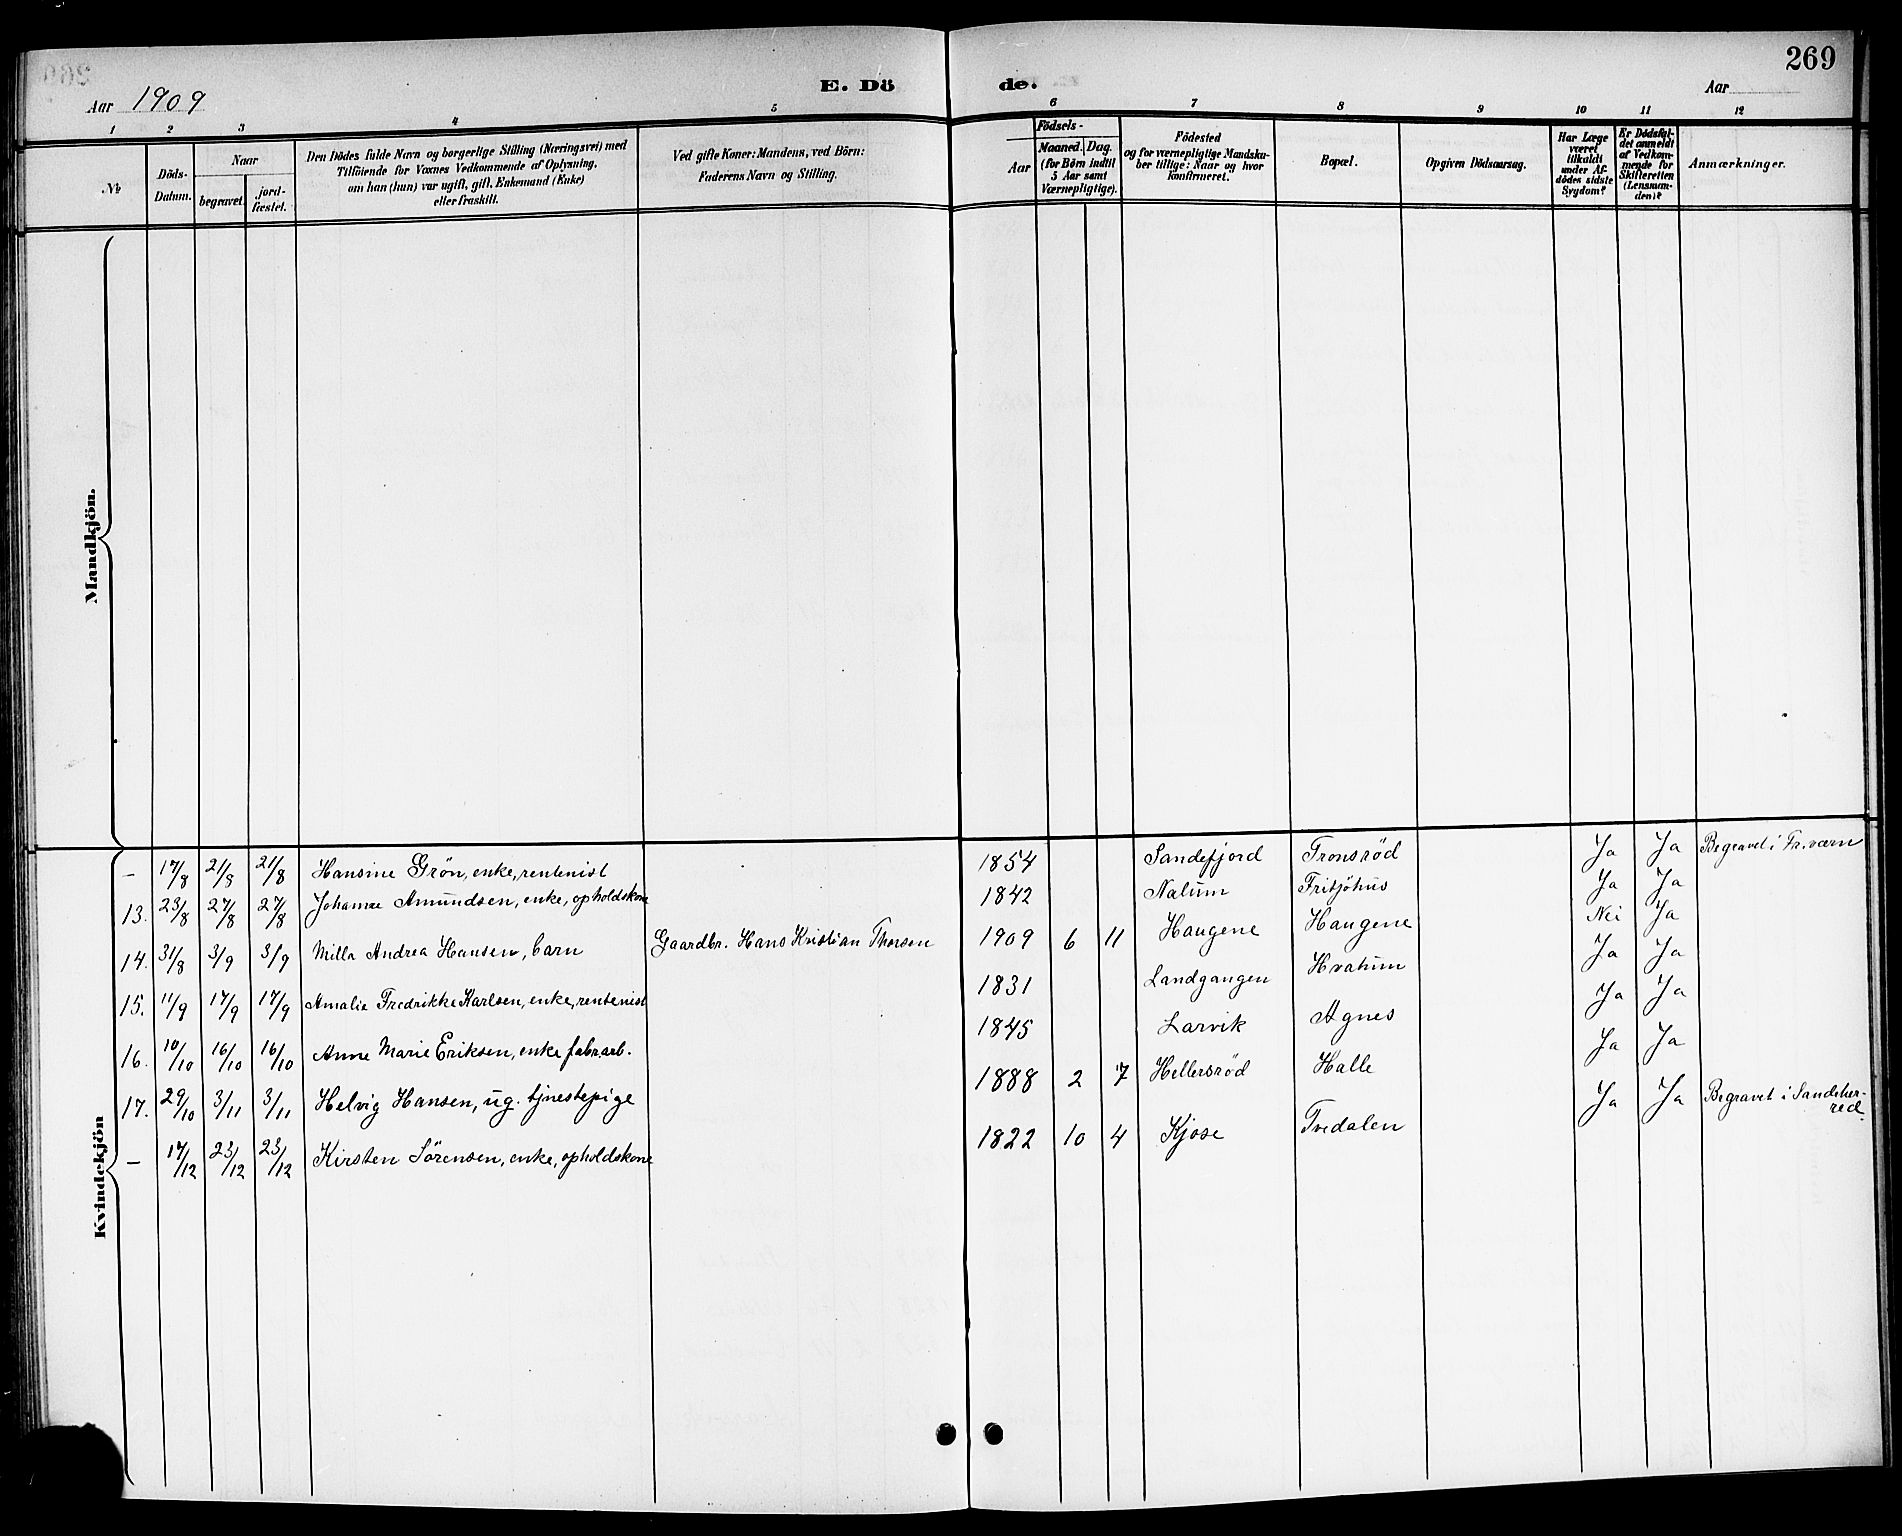 269
Aar 1909
E. Dö de.
Aar
1 2 3 4 5 6 7 8 9 10 11 12
№
Döds-
Datum.
Naar
begravet.
jord-
fæstet.
Den Dödes fulde Navn og borgerlige Stilling (Næringsvei) med
Tilföiende for Voxnes Vedkommende af Oplysning,
om han (hun) var ugift, gift, Enkemand (Enke)
eller fraskilt.
Ved gifte Koner: Mandens, ved Börn:
Faderens Navn og Stilling.
Födsels-
Aar
Maaned. Dag.
(for Börn indtil
5 Aar samt
Værnepligtige).
Födested
og for værnepligtige Mandska-
ber tillige: Naar og hvor
konfirmeret.
Bopæl.
Opgiven Dödsaarsag.
Har Læge
været
tilkaldt
under Af-
dödes sidste
Sygdom?
Er Dödsfal-
det anmeldt
af Vedkom-
mende for
Skifteretten
(Lensman-
den)?
Anmærkninger.
Mandkjön.
Kvindekjön
— 17/8 21/8 21/8 Hansine Grön, enke, rentenist 1854 Sandefjord Tronsröd Ja Ja Begravet i Fr.værn
13. 23/8 27/8 27/8 Johanne Amundsen, enke, opholdskone 1842 Nalum Fritjöhus Ja Ja
14. 31/8 3/9 3/9 Milla Andrea Hansen, barn Gaardbr. Hans Kristian Thorsen 1909 6 11 Haugene Haugene Nei Ja
15. 11/9 17/9 17/9 Amalie Fredrikke Karlsen, enke, rentenist 1831 Landgangen Hvatum Ja Ja
16. 10/10 16/10 16/10 Anne Marie Eriksen, enke fabr.arb. 1845 Larvik Agnes Ja Ja
17. 29/10 3/11 3/11 Helvig Hansen, ug. tjnestepige 1888 2 7 Hellersröd Halle Ja Ja
— 17/12 23/12 23/12 Kirsten Sörensen, enke, opholdskone 1822 10 4 Kjose Tvedalen Ja Ja Begravet i Sandeher-
red.